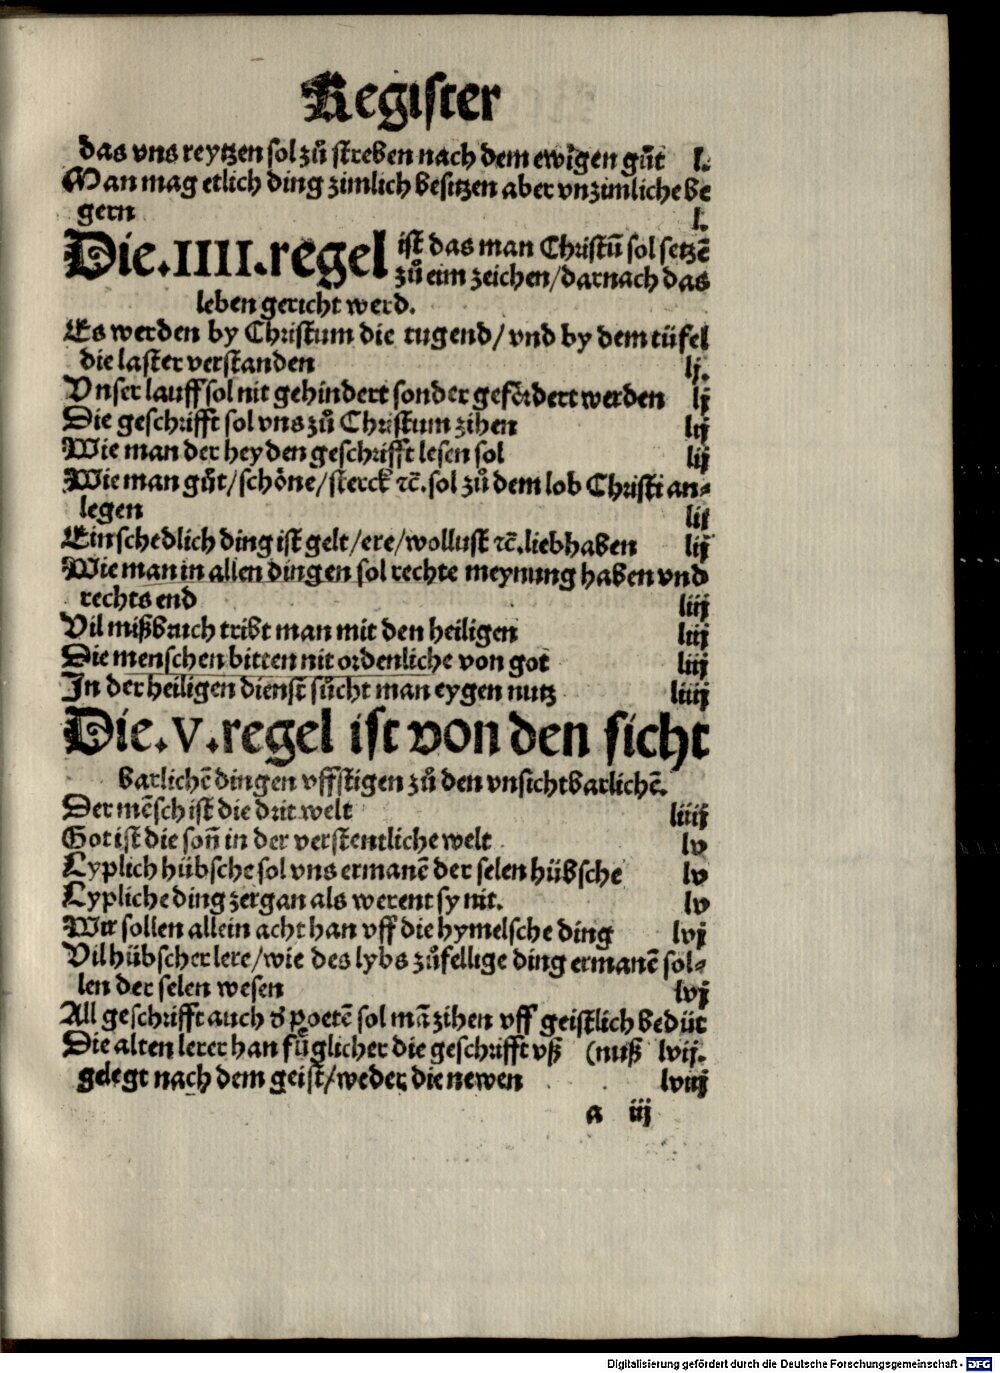 Register
das vns reytzen sol zů streben nach dem ewigen gůt l.
Man mag etlich ding zimlich besitzen aber vnzimliche be
gern l.
Die.IIII.regel ist das man Christū sol setzē
zů eim zeichen/darnach das
leben gericht werd.
Es werden by Christum die tugend/vnd by dem tüfel
die laster verstanden lj.
Vnser lauff sol nit gehindert sonder gefördert werden lj
Die geschrifft sol vns zů Christum zihen lij
Wie man der heyden geschrifft lesen sol lij
Wie man gůt/schöne/sterck ꝛc̄.sol zů dem lob Christi an⸗
legen lij
Ein schedlich ding ist gelt/ere/wollust ꝛc̄.liebhaben lij
Wie man in allen dingen sol rechte meynung haben vnd
rechts end liij
Vil mißbruch tribt man mit den heiligen liij
Die menschen bitten nit ordenliche von got liij
In der heiligen dienst sůcht man eygen nutz liiij
Die.V.regel ist von den sicht
barlichē dingen vffstigen zů den vnsichtbarlichē.
Der mēsch ist die drit welt liiij
Got ist die soñ in der verstentliche welt lv
Lyplich hübsche sol vns ermanē der selen hübsche lv
Lypliche ding zergan als werent sy nit. lv
Wir sollen allein acht han vff die hymelsche ding lvj
Vil hübscher lere/wie des lybs zůfellige ding ermanē sol⸗
len der selen wesen lvj
All geschrifft auch ď poetē sol mā zihen vff geistlich bedüt
Die alten lerer han fůglicher die geschrifft vß (nuß lvij.
gelegt nach dem geist/weder die newen lviij
a iij
Digitalisierung gefördert durch die Deutsche Forschungsgemeinschaft - DFG